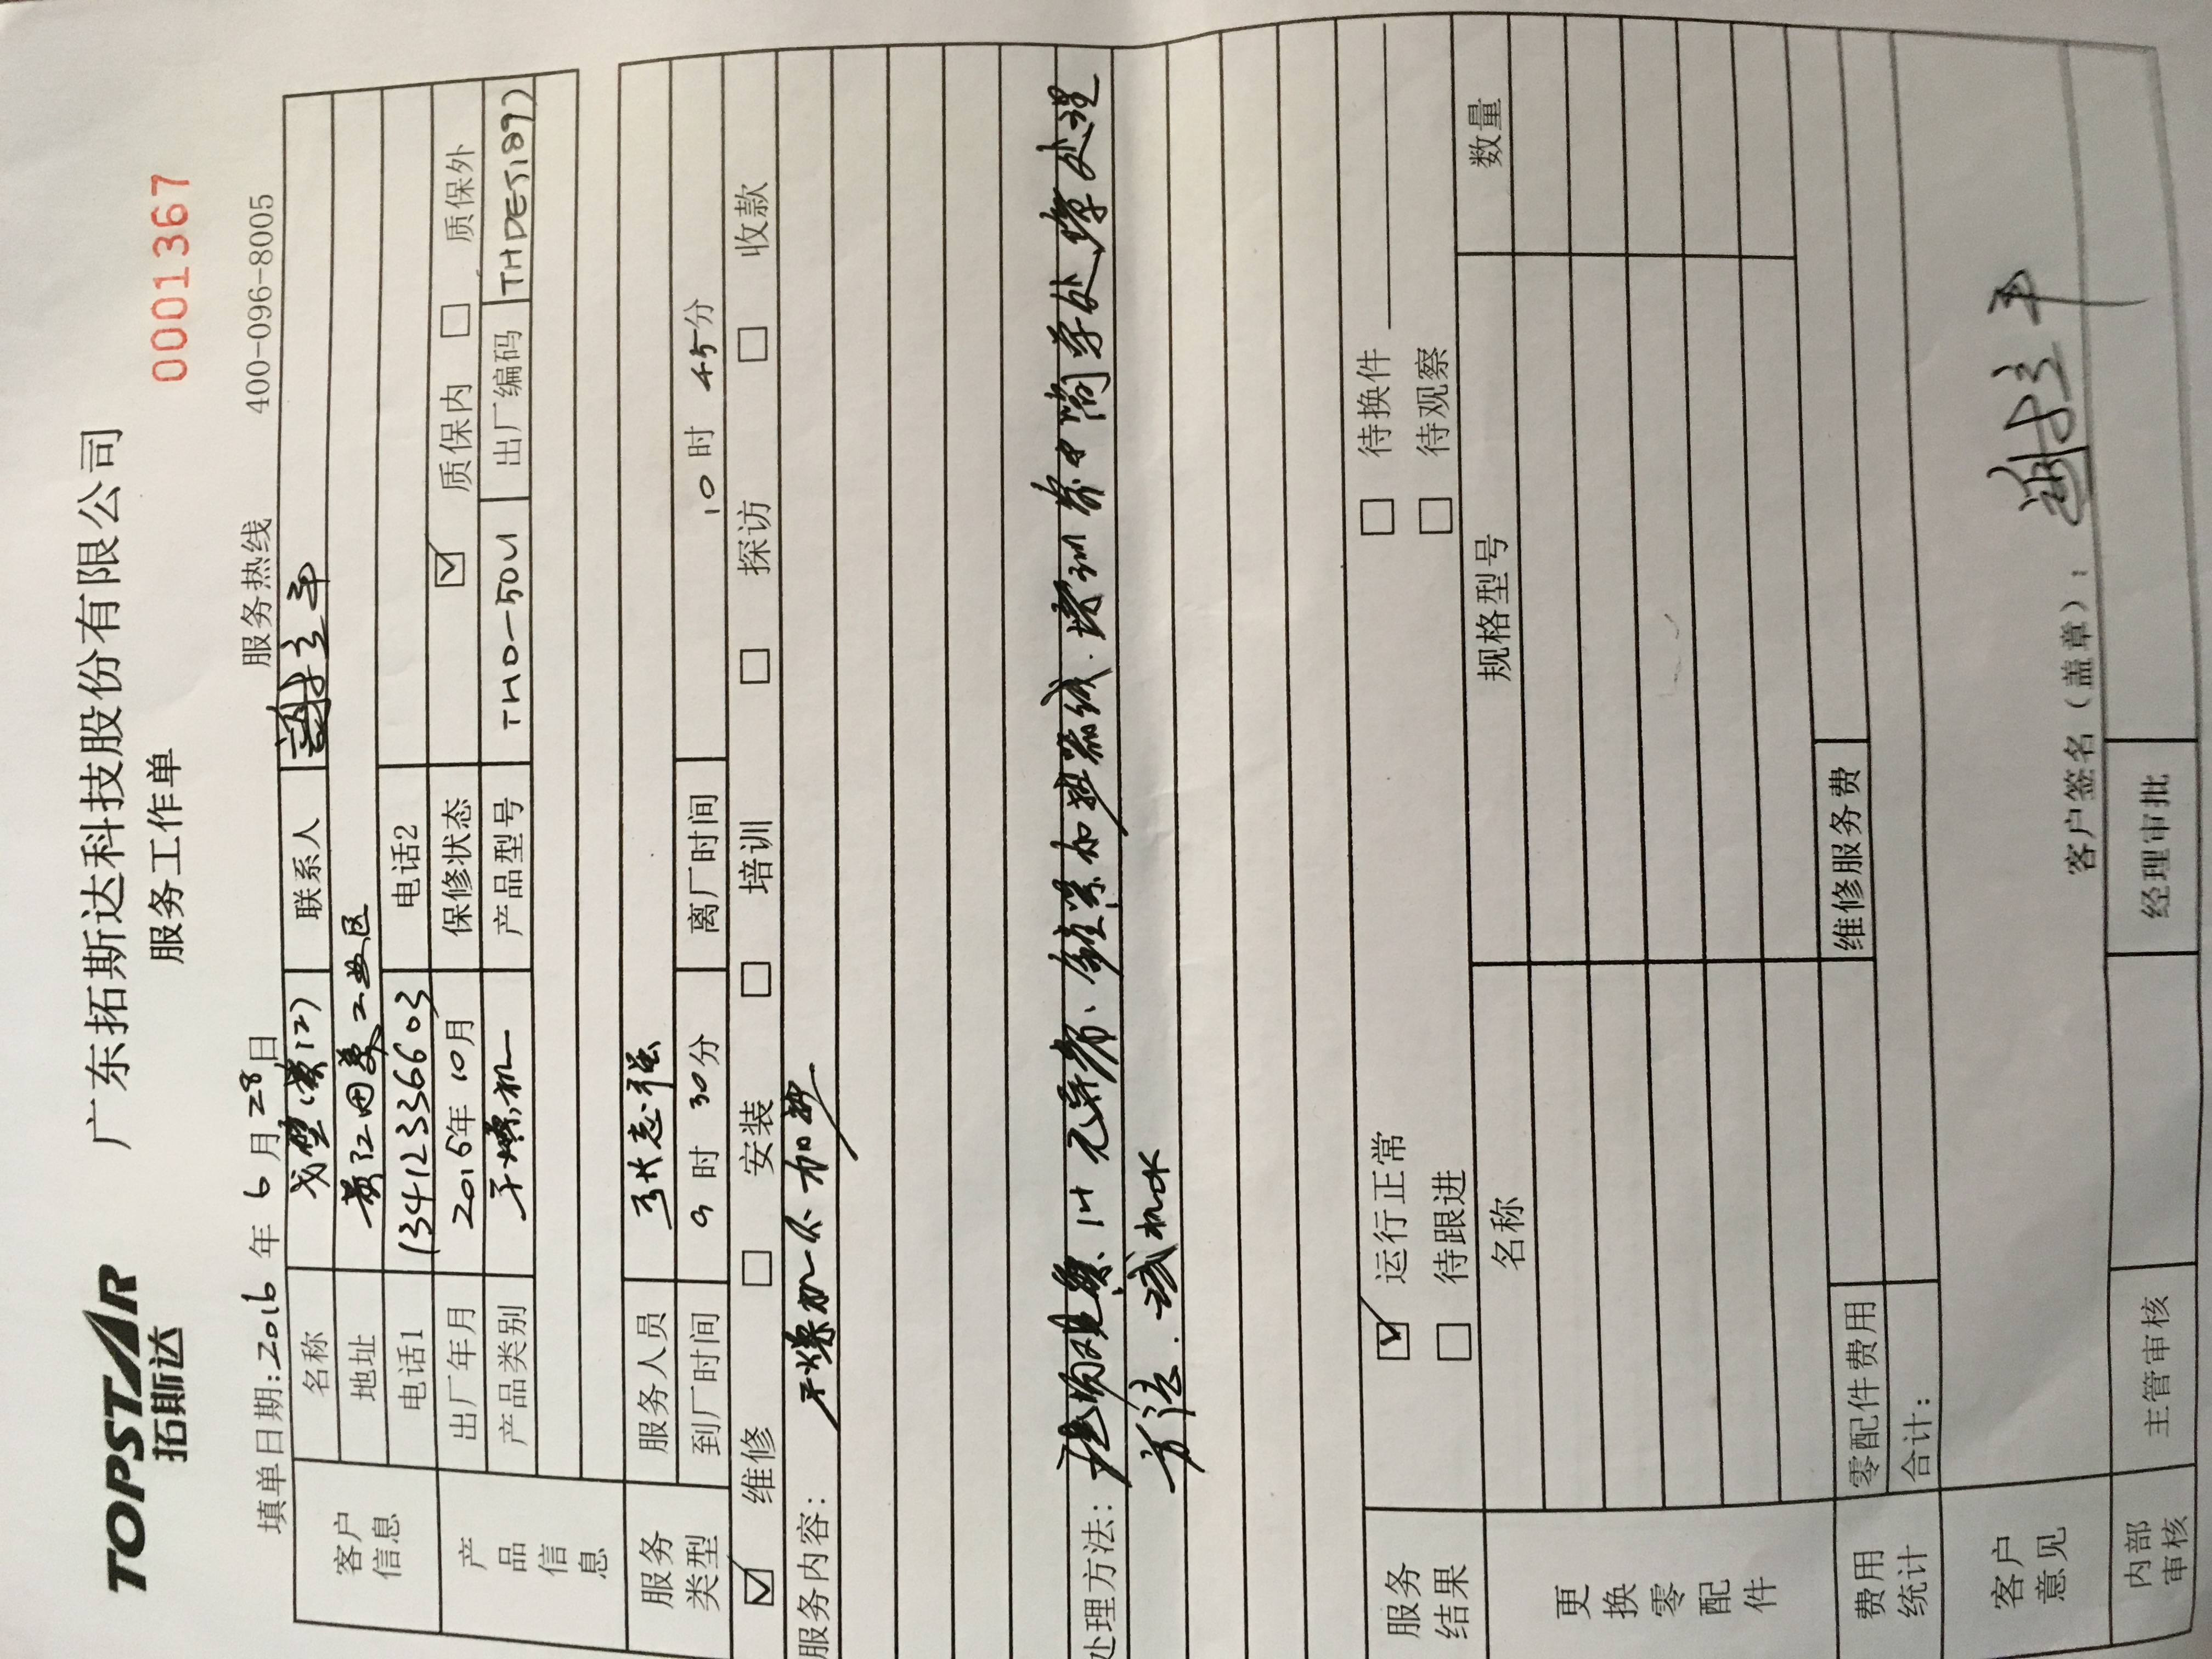 TOPSTAR
拓斯达
广东拓斯达科技股份有限公司
服务工作单
0001367
填单日期:2016年6月28日 服务热线 400-096-8005
客户信息
名称 联系人 谢立平
地址 黄江田美工业区
电话1 13412336603 电话2
产品信息
出厂年月 2016年10月 保修状态 ☑ 质保内 □ 质保外
产品类别 干燥机 产品型号 THD-50U 出厂编码 THDE5189)
服务类型
服务人员 张志强
到厂时间 9时30分 离厂时间 10时45分
☑ 维修 □ 安装 □ 培训 □ 探访 □ 收款
服务内容: 干燥机不加热
处理方法: 加热器线.培训客户简单处理
方法.试机OK
服务结果
☑ 运行正常 □ 待换件
□ 待跟进 □ 待观察
更换零配件
名称 规格型号 数量
费用统计
零配件费用 维修服务费
合计:
客户意见
客户签名(盖章): 谢立平
内部审核 主管审核 经理审批